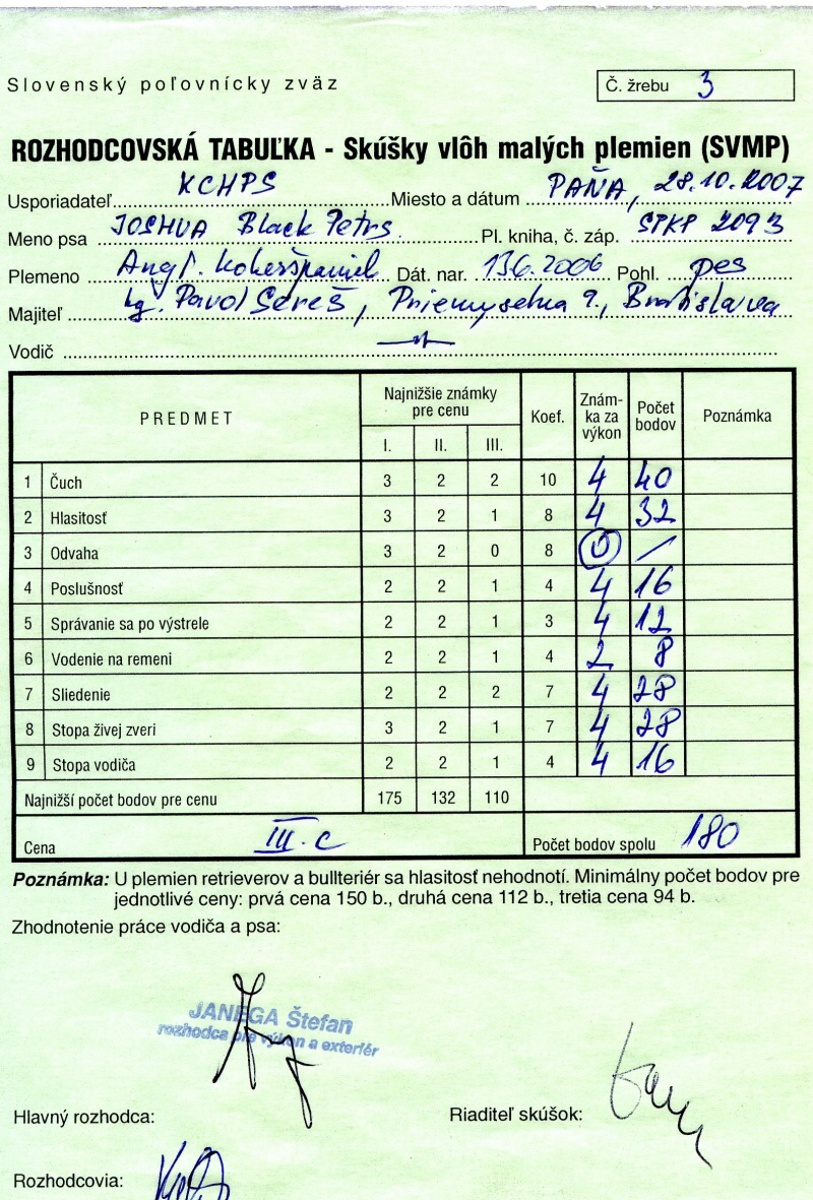 Slovenský poľovnícky zväz
Č. žrebu 3
ROZHODCOVSKÁ TABUĽKA - Skúšky vlôh malých plemien (SVMP)
Usporiadateľ KCHPS Miesto a dátum PAŇA, 28.10.2007
Meno psa JOSHUA Black Petrs Pl. kniha, č. záp. SPKP 2093
Plemeno Angl. kokeršpaniel Dát. nar. 13.6.2006 Pohl. pes
Majiteľ Ing. Pavol Sereš, Priemyselna 9., Bratislava
Vodič
PREDMET Najnižšie známky pre cenu Koef. Znám- ka za výkon Počet bodov Poznámka
I. II. III.
1 Čuch 3 2 2 10 4 40
2 Hlasitosť 3 2 1 8 4 32
3 Odvaha 3 2 0 8 0 /
4 Poslušnosť 2 2 1 4 4 16
5 Správanie sa po výstrele 2 2 1 3 4 12
6 Vodenie na remeni 2 2 1 4 2 8
7 Sliedenie 2 2 2 7 4 28
8 Stopa živej zveri 3 2 1 7 4 28
9 Stopa vodiča 2 2 1 4 4 16
Najnižší počet bodov pre cenu 175 132 110
Cena III. c Počet bodov spolu 180
Poznámka: U plemien retrieverov a bullteriér sa hlasitosť nehodnotí. Minimálny počet bodov pre
jednotlivé ceny: prvá cena 150 b., druhá cena 112 b., tretia cena 94 b.
Zhodnotenie práce vodiča a psa:
JANEGA Štefan
rozhodca pre výkon a exteriér
Hlavný rozhodca: Riaditeľ skúšok:
Rozhodcovia: